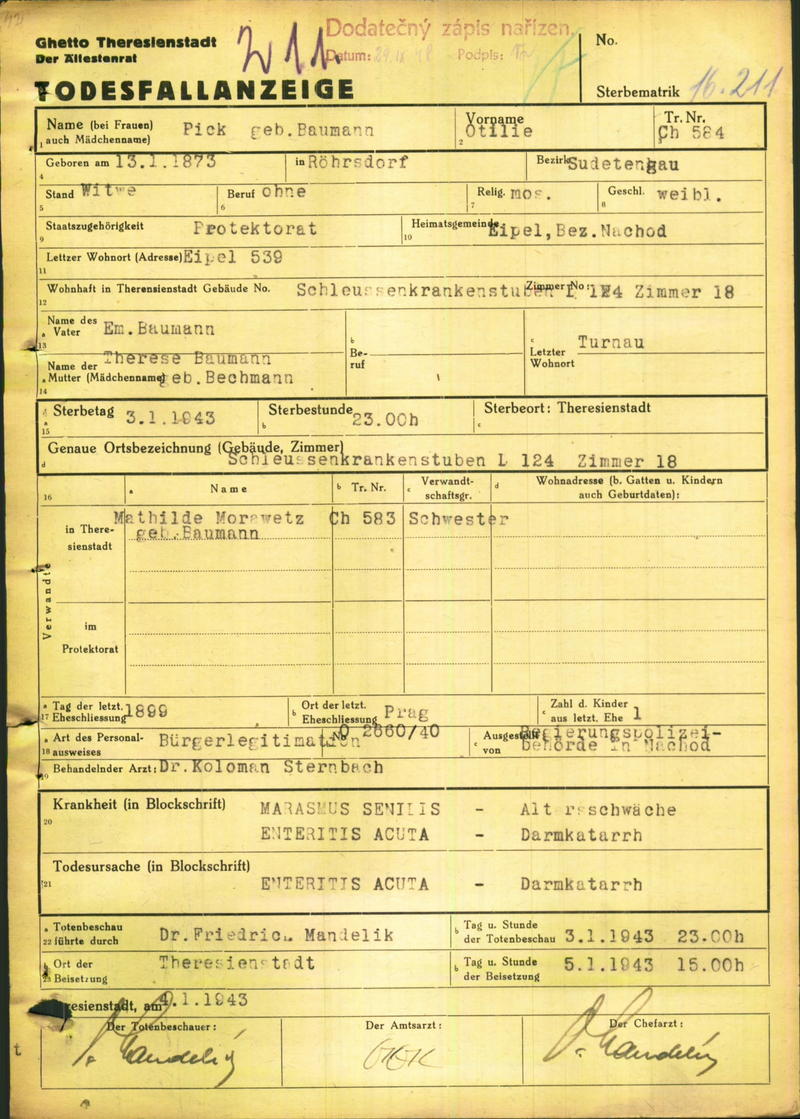 Dodatečný zápis nařízen.
Datum: Podpis:
Ghetto Theresienstadt
Der Ältestenrat
TODESFALLANZEIGE
No.
Sterbematrik 16.211
Name (bei Frauen) auch Mädchenname) Pick geb.Baumann
Vorname Otilie
Tr. Nr. Ch 584
Geboren am 13.1.1873 in Röhrsdorf Bezirk Sudetengau
Stand Witwe Beruf ohne Relig. mos. Geschl. weibl.
Staatszugehörigkeit Protektorat Heimatsgemeinde Eipel,Bez.Nachod
Lettzer Wohnort (Adresse) Eipel 539
Wohnhaft in Theresienstadt Gebäude No. Schleussenkrankenstuben L 124 Zimmer No: Zimmer 18
Name des Vater Em.Baumann
Name der Mutter (Mädchenname) Therese Baumann geb.Bechmann
Beruf
Letzter Wohnort Turnau
Sterbetag 3.1.1943 Sterbestunde 23.00h Sterbeort: Theresienstadt
Genaue Ortsbezeichnung (Gebäude, Zimmer)
Schleussenkrankenstuben L 124 Zimmer 18
16 a Name b Tr. Nr. c Verwandtschaftsgr. d Wohnadresse (b. Gatten u. Kindern auch Geburtdaten):
Verwandte
in Theresienstadt Mathilde Morawetz geb.Baumann Ch 583 Schwester
im Protektorat
Tag der letzt. Eheschliessung 1899 Ort der letzt. Eheschliessung Prag Zahl d. Kinder aus letzt. Ehe 1
Art des Personalausweises Bürgerlegitimation No 2660/40 Ausgestellt von Regierungspolizei-
behörde in Nachod
Behandelnder Arzt: Dr.Koloman Sternbach
Krankheit (in Blockschrift) MARASMUS SENILIS - Altersschwäche
ENTERITIS ACUTA - Darmkatarrh
Todesursache (in Blockschrift)
ENTERITIS ACUTA - Darmkatarrh
Totenbeschau führte durch Dr.Friedrich Mandelik Tag u. Stunde der Totenbeschau 3.1.1943 23.00h
Ort der Beisetzung Theresienstadt Tag u. Stunde der Beisetzung 5.1.1943 15.00h
Theresienstadt, am 4.1.1943
Der Totenbeschauer: Der Amtsarzt: Der Chefarzt: